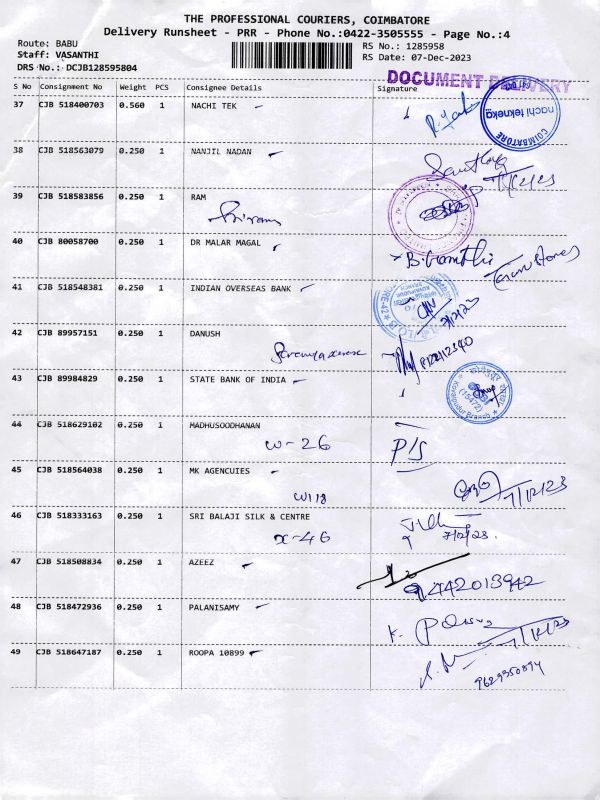 THE PROFESSIONAL COURIERS, COIMBATORE
Delivery Runsheet - PRR - Phone No.:0422-3505555 - Page No.:4
Route: BABU
RS No.: 1285958
Staff: VASANTHI
RS Date: 07-Dec-2023
DRS No.: DCJB128595804
DOCUMENT DELIVERY
S No Consignment No Weight PCS Consignee Details Signature
37 CJB 518400703 0.560 1 NACHI TEK
nachi teknekq
COIMBATORE
38 CJB 518563079 0.250 1 NANJIL NADAN
7/12/23
39 CJB 518583856 0.250 1 RAM
Sriram
40 CJB 80058700 0.250 1 DR MALAR MAGAL
41 CJB 518548381 0.250 1 INDIAN OVERSEAS BANK
7/12/23
42 CJB 89957151 0.250 1 DANUSH
43 CJB 89984829 0.250 1 STATE BANK OF INDIA
SBI
(15472)
44 CJB 518629102 0.250 1 MADHUSOODHANAN
W-26 P/S
45 CJB 518564038 0.250 1 MK AGENCUIES
W118 7/12/23
46 CJB 518333163 0.250 1 SRI BALAJI SILK & CENTRE
X-46 7/12/23.
47 CJB 518508834 0.250 1 AZEEZ
9442013942
48 CJB 518472936 0.250 1 PALANISAMY
K. 7/12/23
49 CJB 518647187 0.250 1 ROOPA 10899
9629350894